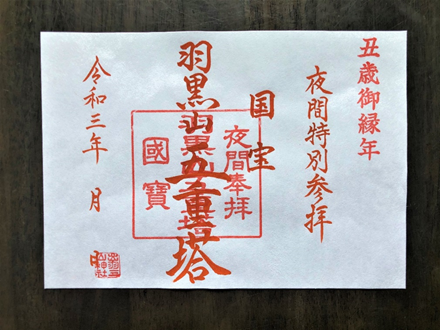 丑歳御縁年
夜間特別参拝
国宝
羽黒山五重塔
夜間奉拝
羽黒山五重塔
國寶
令和三年 月 日